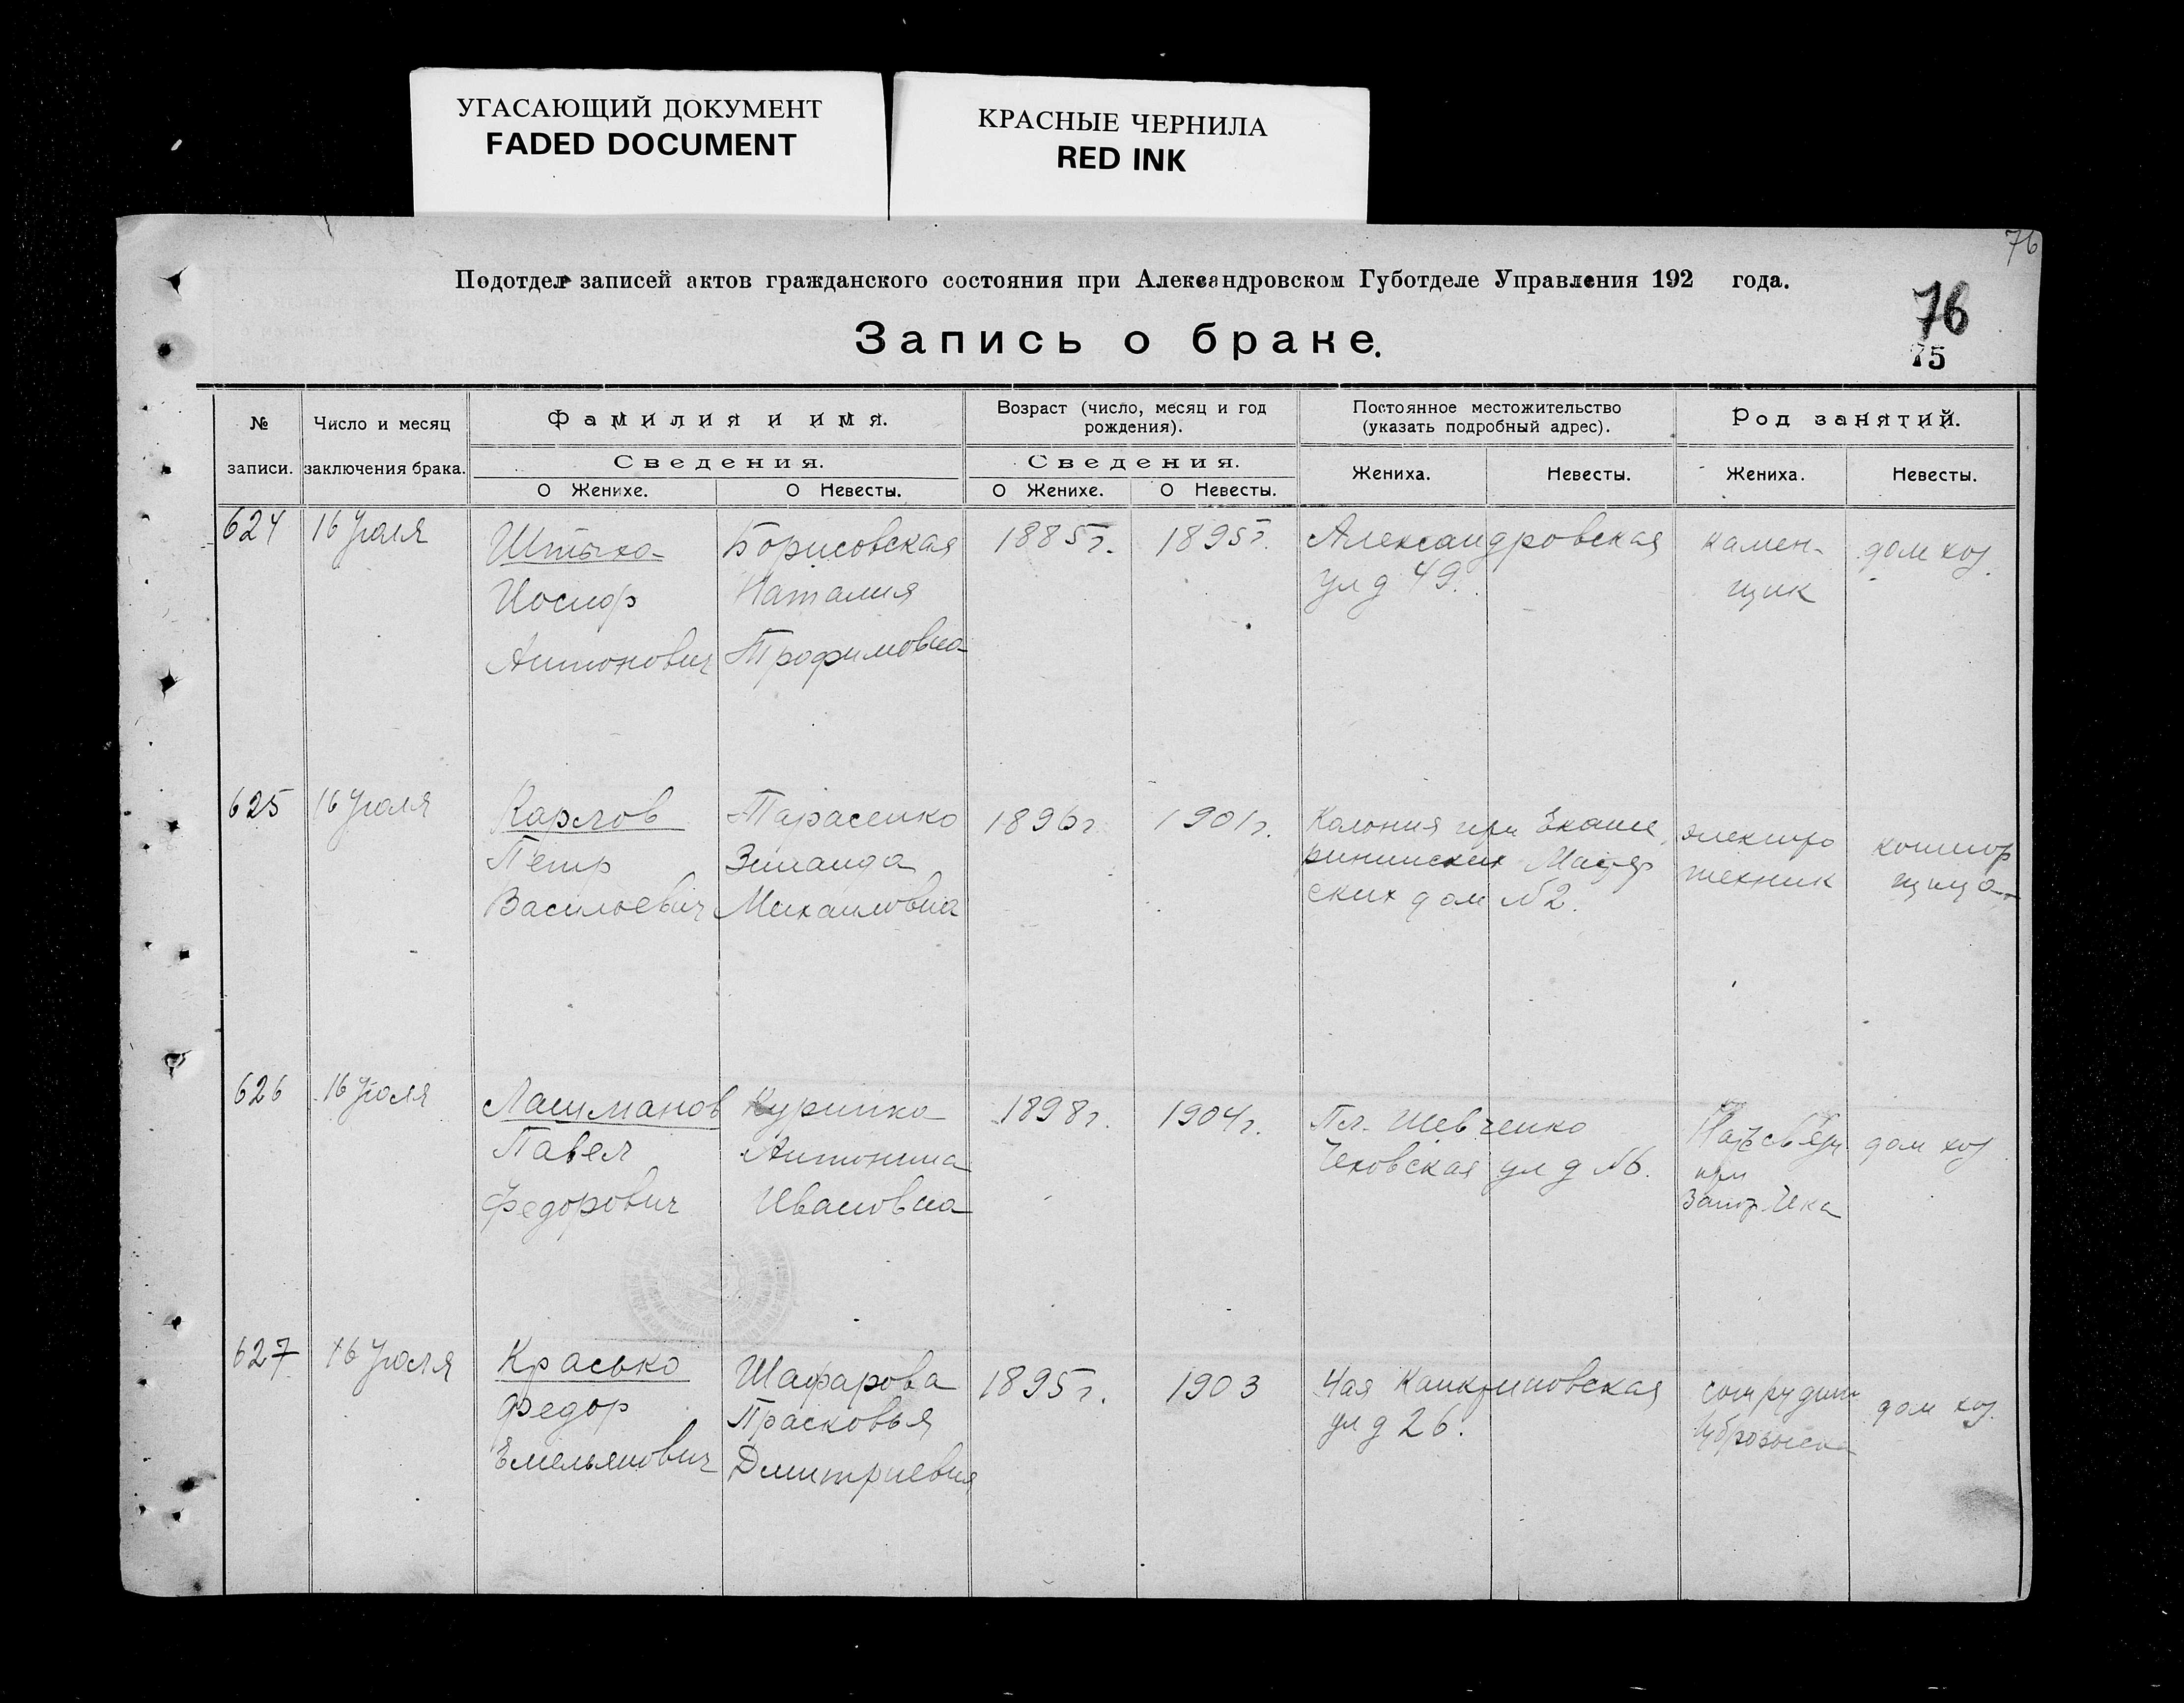 УГАСАЮЩИЙ ДОКУМЕНТ
FADED DOCUMENT
КРАСНЫЕ ЧЕРНИЛА
RED INK
76
Подотдел записей актов гражданского состояния при Александровском Губотделе Управления 192 года.
76
Запись о браке.
75
№ записи.
Число и месяц заключения брака.
Фамилия и имя.
Сведения.
О Женихе.
О Невесты.
Возраст (число, месяц и год рождения).
Сведения.
О Женихе.
О Невесты.
Постоянное местожительство (указать подробный адрес).
Жениха.
Невесты.
Род занятий.
Жениха.
Невесты.
624 16 Июля
Иосиф
Антонович
Борисовская
Наталия
Трофимовна
1885г. 1895г.
Александровская
ул д 49.
камен-
щик
дом хоз
625 16 Июля
Карлов
Петр
Васильевич
Тарасенко
Зинаида
Михаиловна
1896г 1901г.
Колония при Екате
рининских
ских дом №2.
электро
техник
контор
щица
626 16 Июля
Лашманов
Павел
Федорович
Куринко
Антонина
Ивановна
1898г. 1904г.
Пл. Шевченко
Чеховская ул д №6.
при
Запор Чека
дом хоз
627 16 Июля
Красько
Федор
Емельянович
Шафарова
Прасковья
Дмитриевна
1895г. 1903
4ая
ул д 26.
сотрудн
дом хоз.